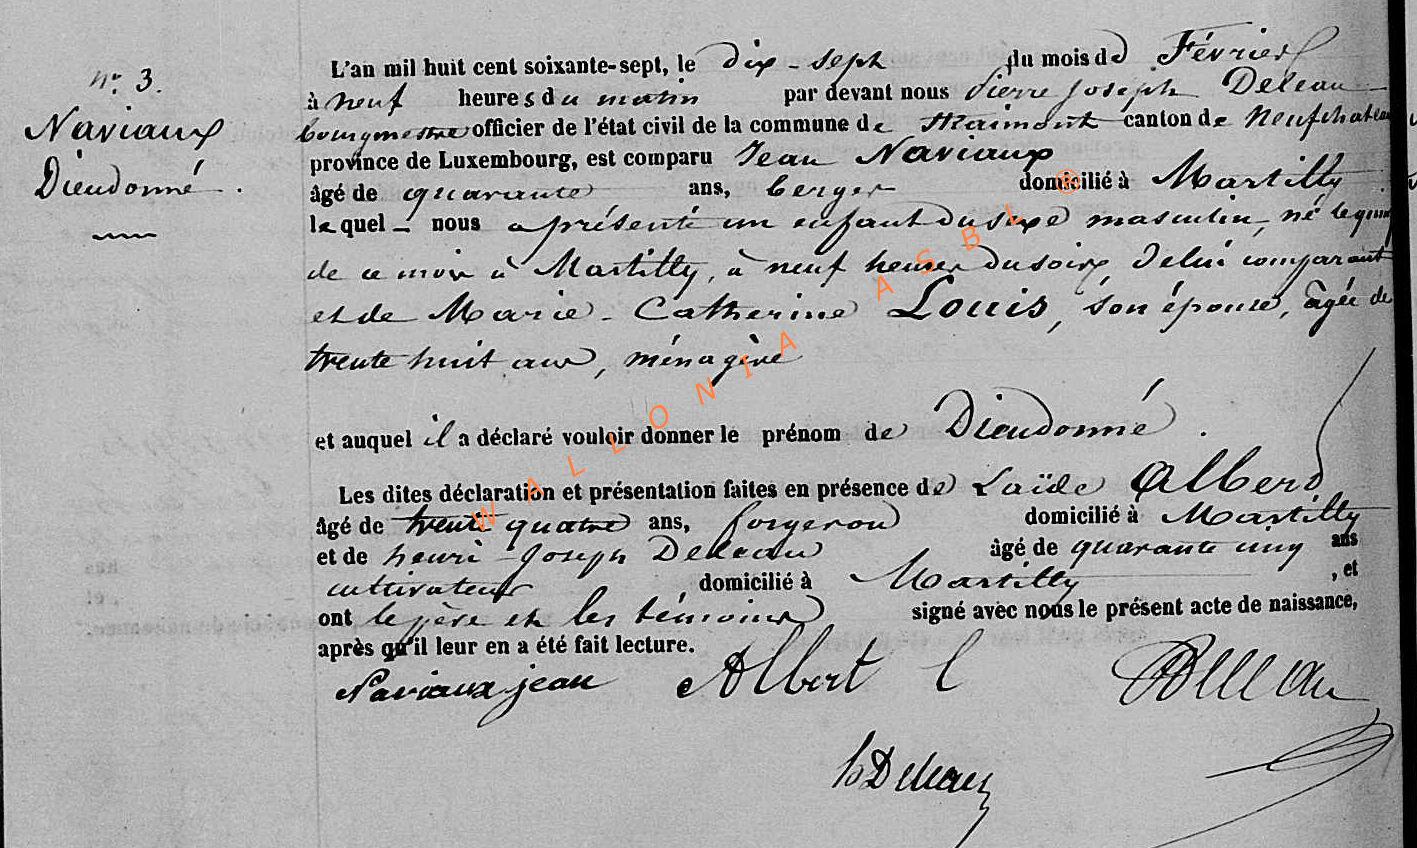 n° 3.
Naviaux
Dieudonné.
L'an mil huit cent soixante-sept, le dix-sept du mois de Février
à neuf heures du matin par devant nous Pierre Joseph Deleau
bourgmestre officier de l'état civil de la commune de Straimont canton de Neufchateau
province de Luxembourg, est comparu Jean Naviaux
âgé de quarante ans, berger domicilié à Martilly
lequel nous a présenté un enfant du sexe masculin, né le quinze
de ce mois à Martilly, à neuf heures du soir, de lui comparant
et de Marie-Catherine Louis, son épouse, âgée de
trente huit ans, ménagère
et auquel il a déclaré vouloir donner le prénom de Dieudonné.
Les dites déclaration et présentation faites en présence de Laïde Albert
âgé de trente quatre ans, forgeron domicilié à Martilly
et de henri-Joseph Deleau âgé de quarante cinq ans
cultivateur domicilié à Martilly, et
ont le père et les témoins signé avec nous le présent acte de naissance,
après qu'il leur en a été fait lecture.
Naviaux jean Albert L Deleau
h Deleau
WALLONIA ASBL ®